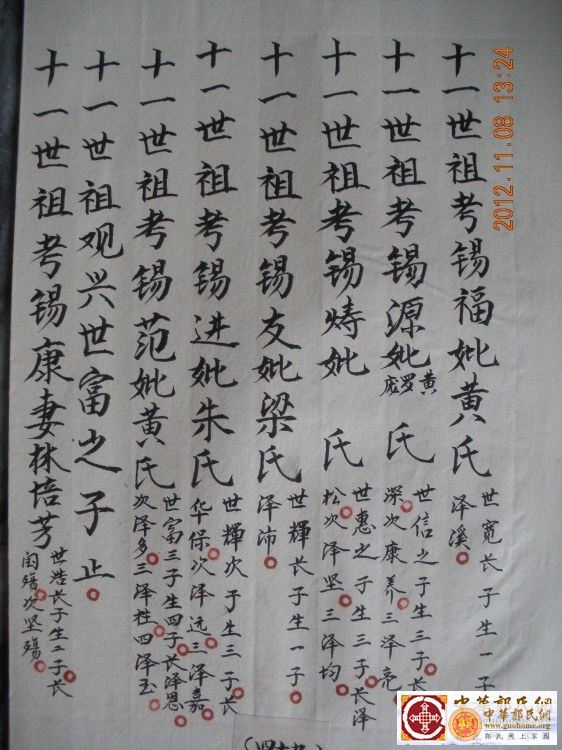 十一世祖考锡福妣黄氏
世宽长子生一子
泽溪
十一世祖考锡源妣黄罗庞氏
世信之子生三子长
深次康养三泽亮
十一世祖考锡焘妣 氏
世惠之子生三子长泽
松次泽坚三泽均
十一世祖考锡友妣梁氏
世辉长子生一子
泽沛
十一世祖考锡进妣朱氏
世辉次子生三子长
华保次泽远三泽嘉
十一世祖考锡范妣黄氏
世富三子生四子长泽恩
次泽多三泽柱四泽玉
十一世祖观兴世富之子止
十一世祖考锡康妻林培芳
世浩长子生二子长
国殇次坚殇
2012.11.08 13:24
中华郭氏网
www.guohome.org
郭氏网上家园